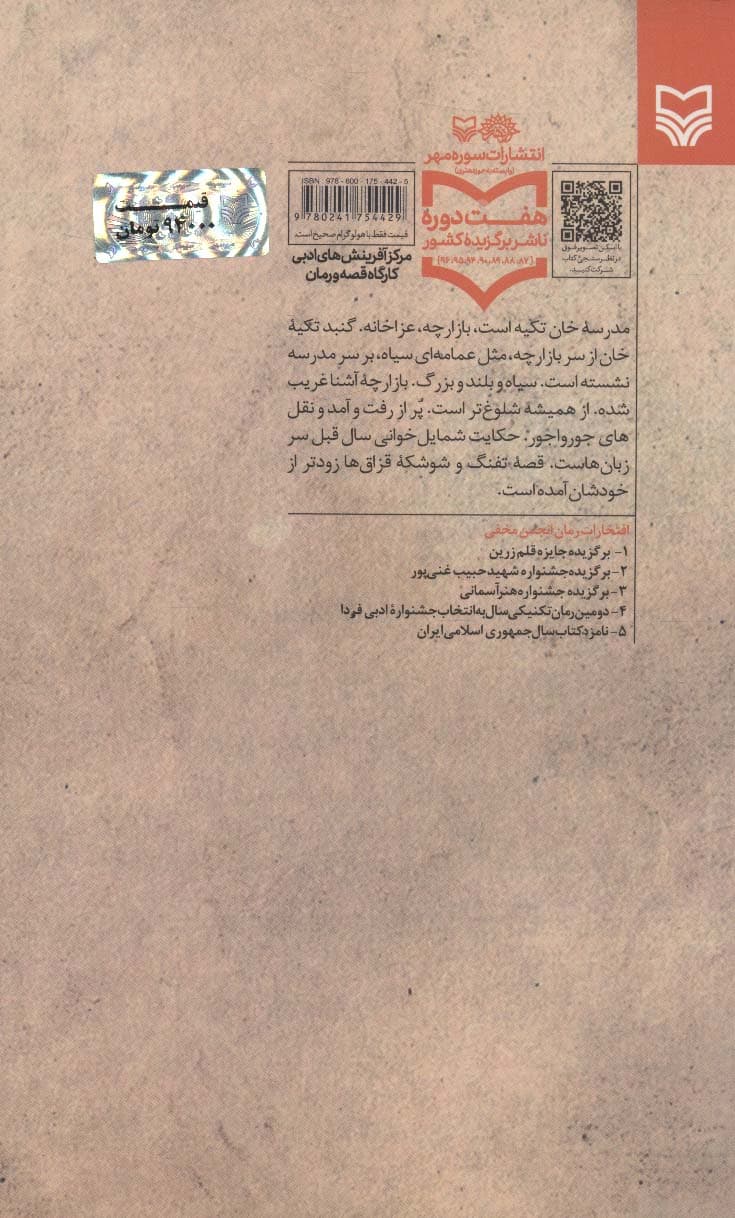 انتشارات سوره مهر
(وابسته به حوزه هنری)
هفت دورهٔ
ناشر برگزیدهٔ کشور
[۸۷، ۸۸، ۸۹، ۹۰، ۹۴، ۹۵، ۹۶]
با اسکن تصویر فوق
در نظرسنجی کتاب
شرکت کنید.
ISBN: 978-600-175-442-5
9 780241 754429
قیمت فقط با هولوگرام صحیح است.
مرکز آفرینش‌های ادبی
کارگاه قصه و رمان
قیمت
۹۴۰۰۰ تومان
مدرسهٔ خان تکیه است، بازارچه، عزاخانه. گنبد تکیهٔ
خان از سر بازارچه، مثل عمامه‌ای سیاه، بر سر مدرسه
نشسته است. سیاه و بلند و بزرگ. بازارچهٔ آشنا غریب
شده. از همیشه شلوغ‌تر است. پُر از رفت و آمد و نقل
های جورواجور. حکایت شمایل‌خوانی سال قبل سر
زبان‌هاست. قصهٔ تفنگ و شوشکهٔ قزاق‌ها زودتر از
خودشان آمده است.
افتخارات رمان انجمن مخفی
۱- برگزیده جایزه قلم زرین
۲- برگزیده جشنواره شهید حبیب غنی‌پور
۳- برگزیده جشنواره هنر آسمانی
۴- دومین رمان تکنیکی سال به انتخاب جشنوارهٔ ادبی فردا
۵- نامزد کتاب سال جمهوری اسلامی ایران